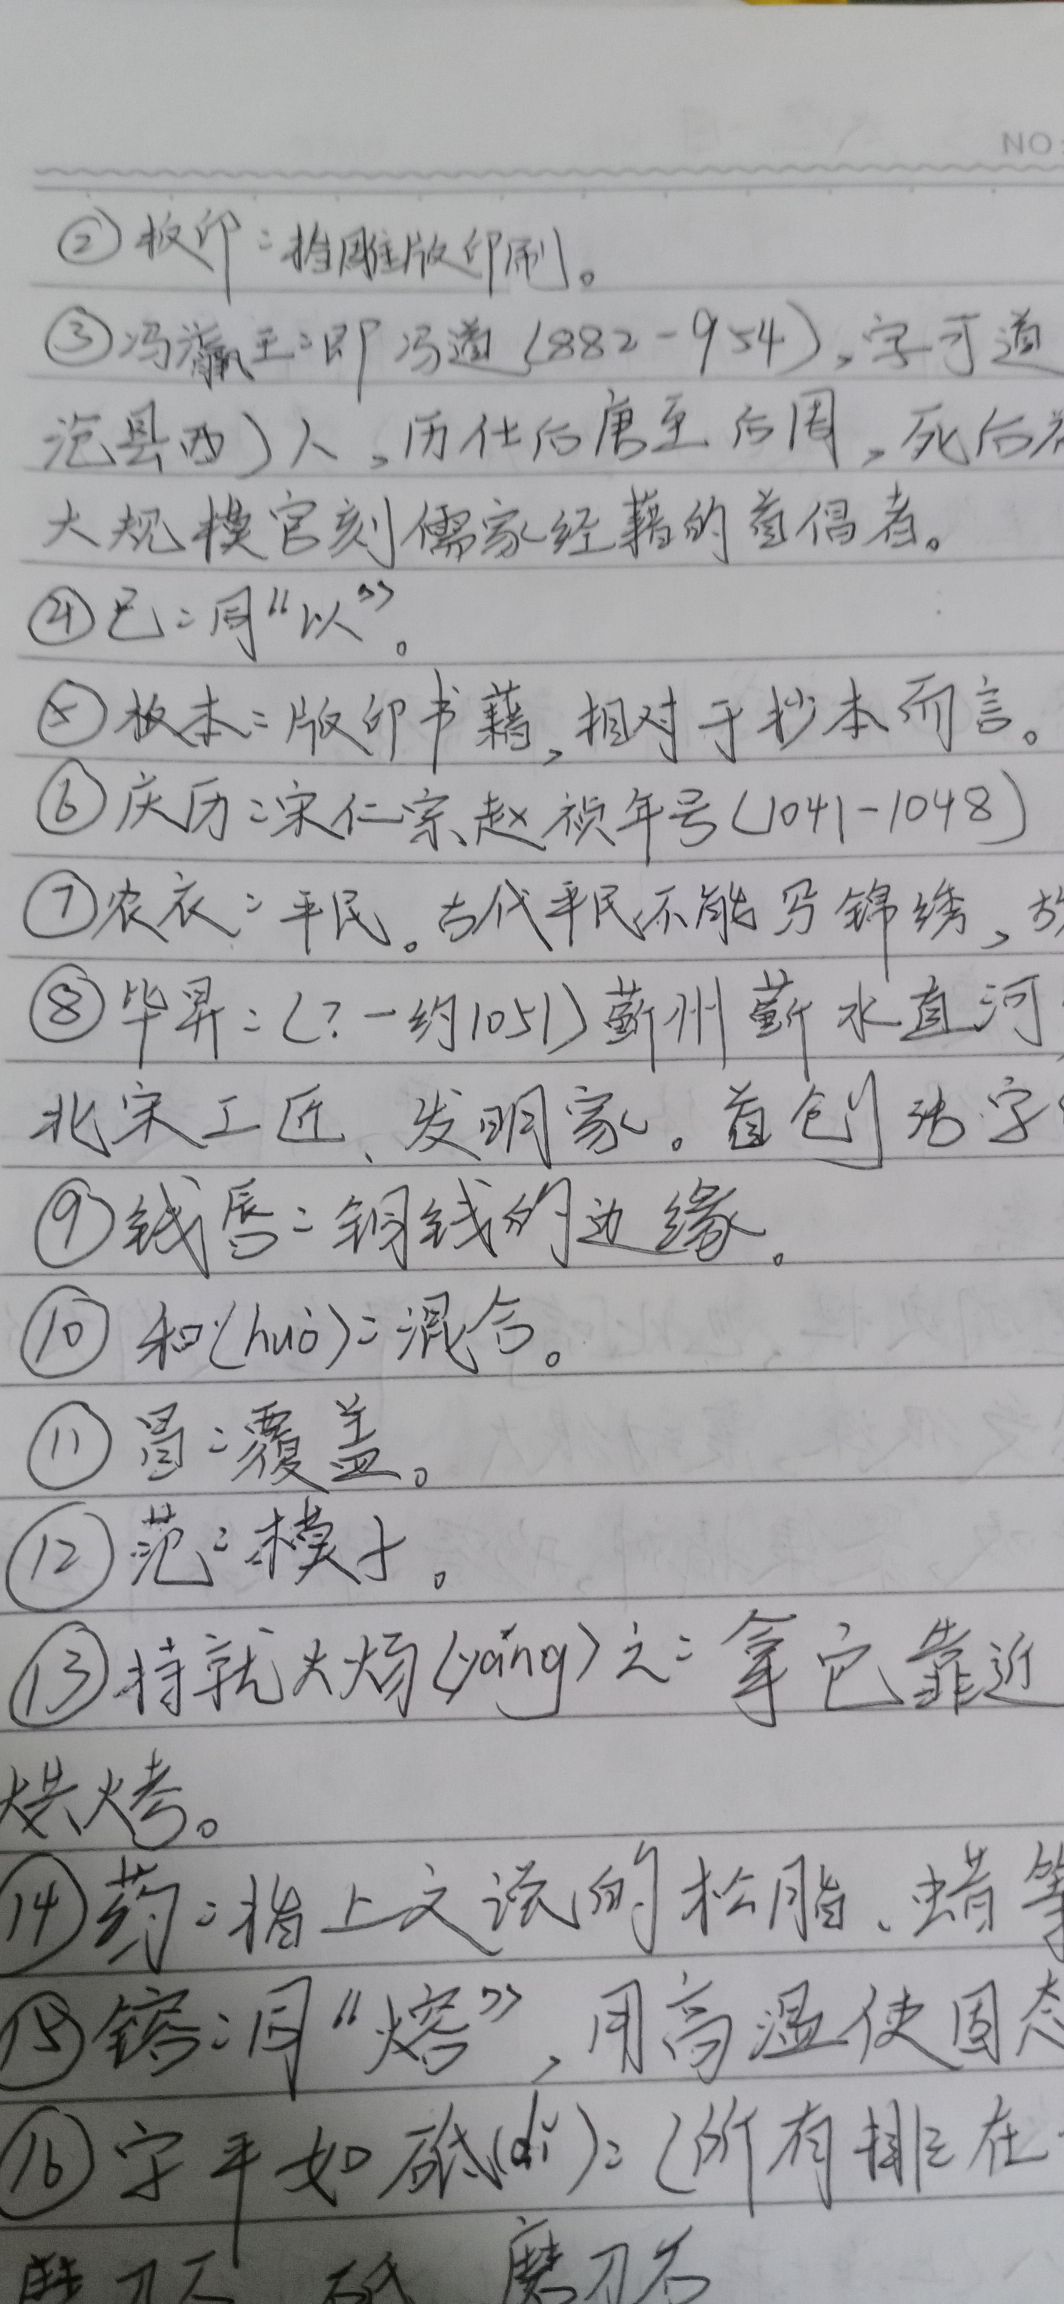 NO:
②板印:指雕版印刷。
③冯瀛王:即冯道(882-954),字可道
范县西)人,历仕后唐至后周,死后
大规模官刻儒家经藉的首倡者。
④已:同“以”。
⑤板本:版印书藉,相对于抄本而言。
⑥庆历:宋仁宗赵祯年号(1041-1048)
⑦农衣:平民。古代平民不能穿锦绣,故
⑧毕昇:(?-约1051)蕲州蕲水直河
北宋工匠、发明家。首创活字
⑨钱唇:铜钱的边缘。
⑩和(huò):混合。
⑪冒:覆盖。
⑫范:模子。
⑬持就火炀(yáng)之:拿它靠近
烘烤。
⑭药:指上文说的松脂、蜡等
⑮镕:同“熔”,用高温使固态
⑯字平如砥(dǐ):(所有排在
磨刀石 砥 磨刀石